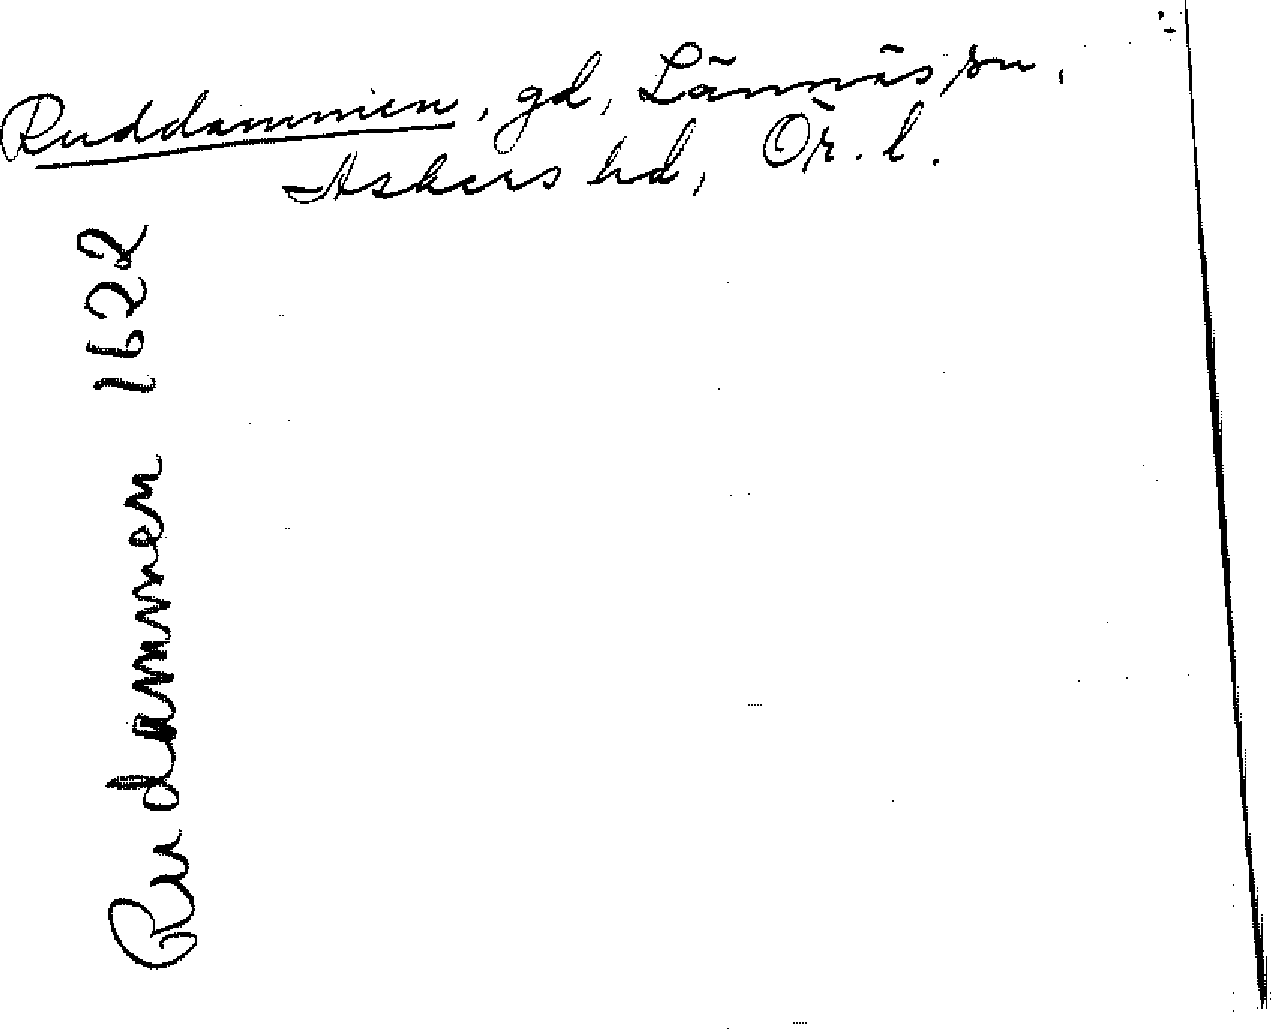 Ruddammen, gd, Lännäs sn,
Askers hd, Ör. l.
Rudammen 1622